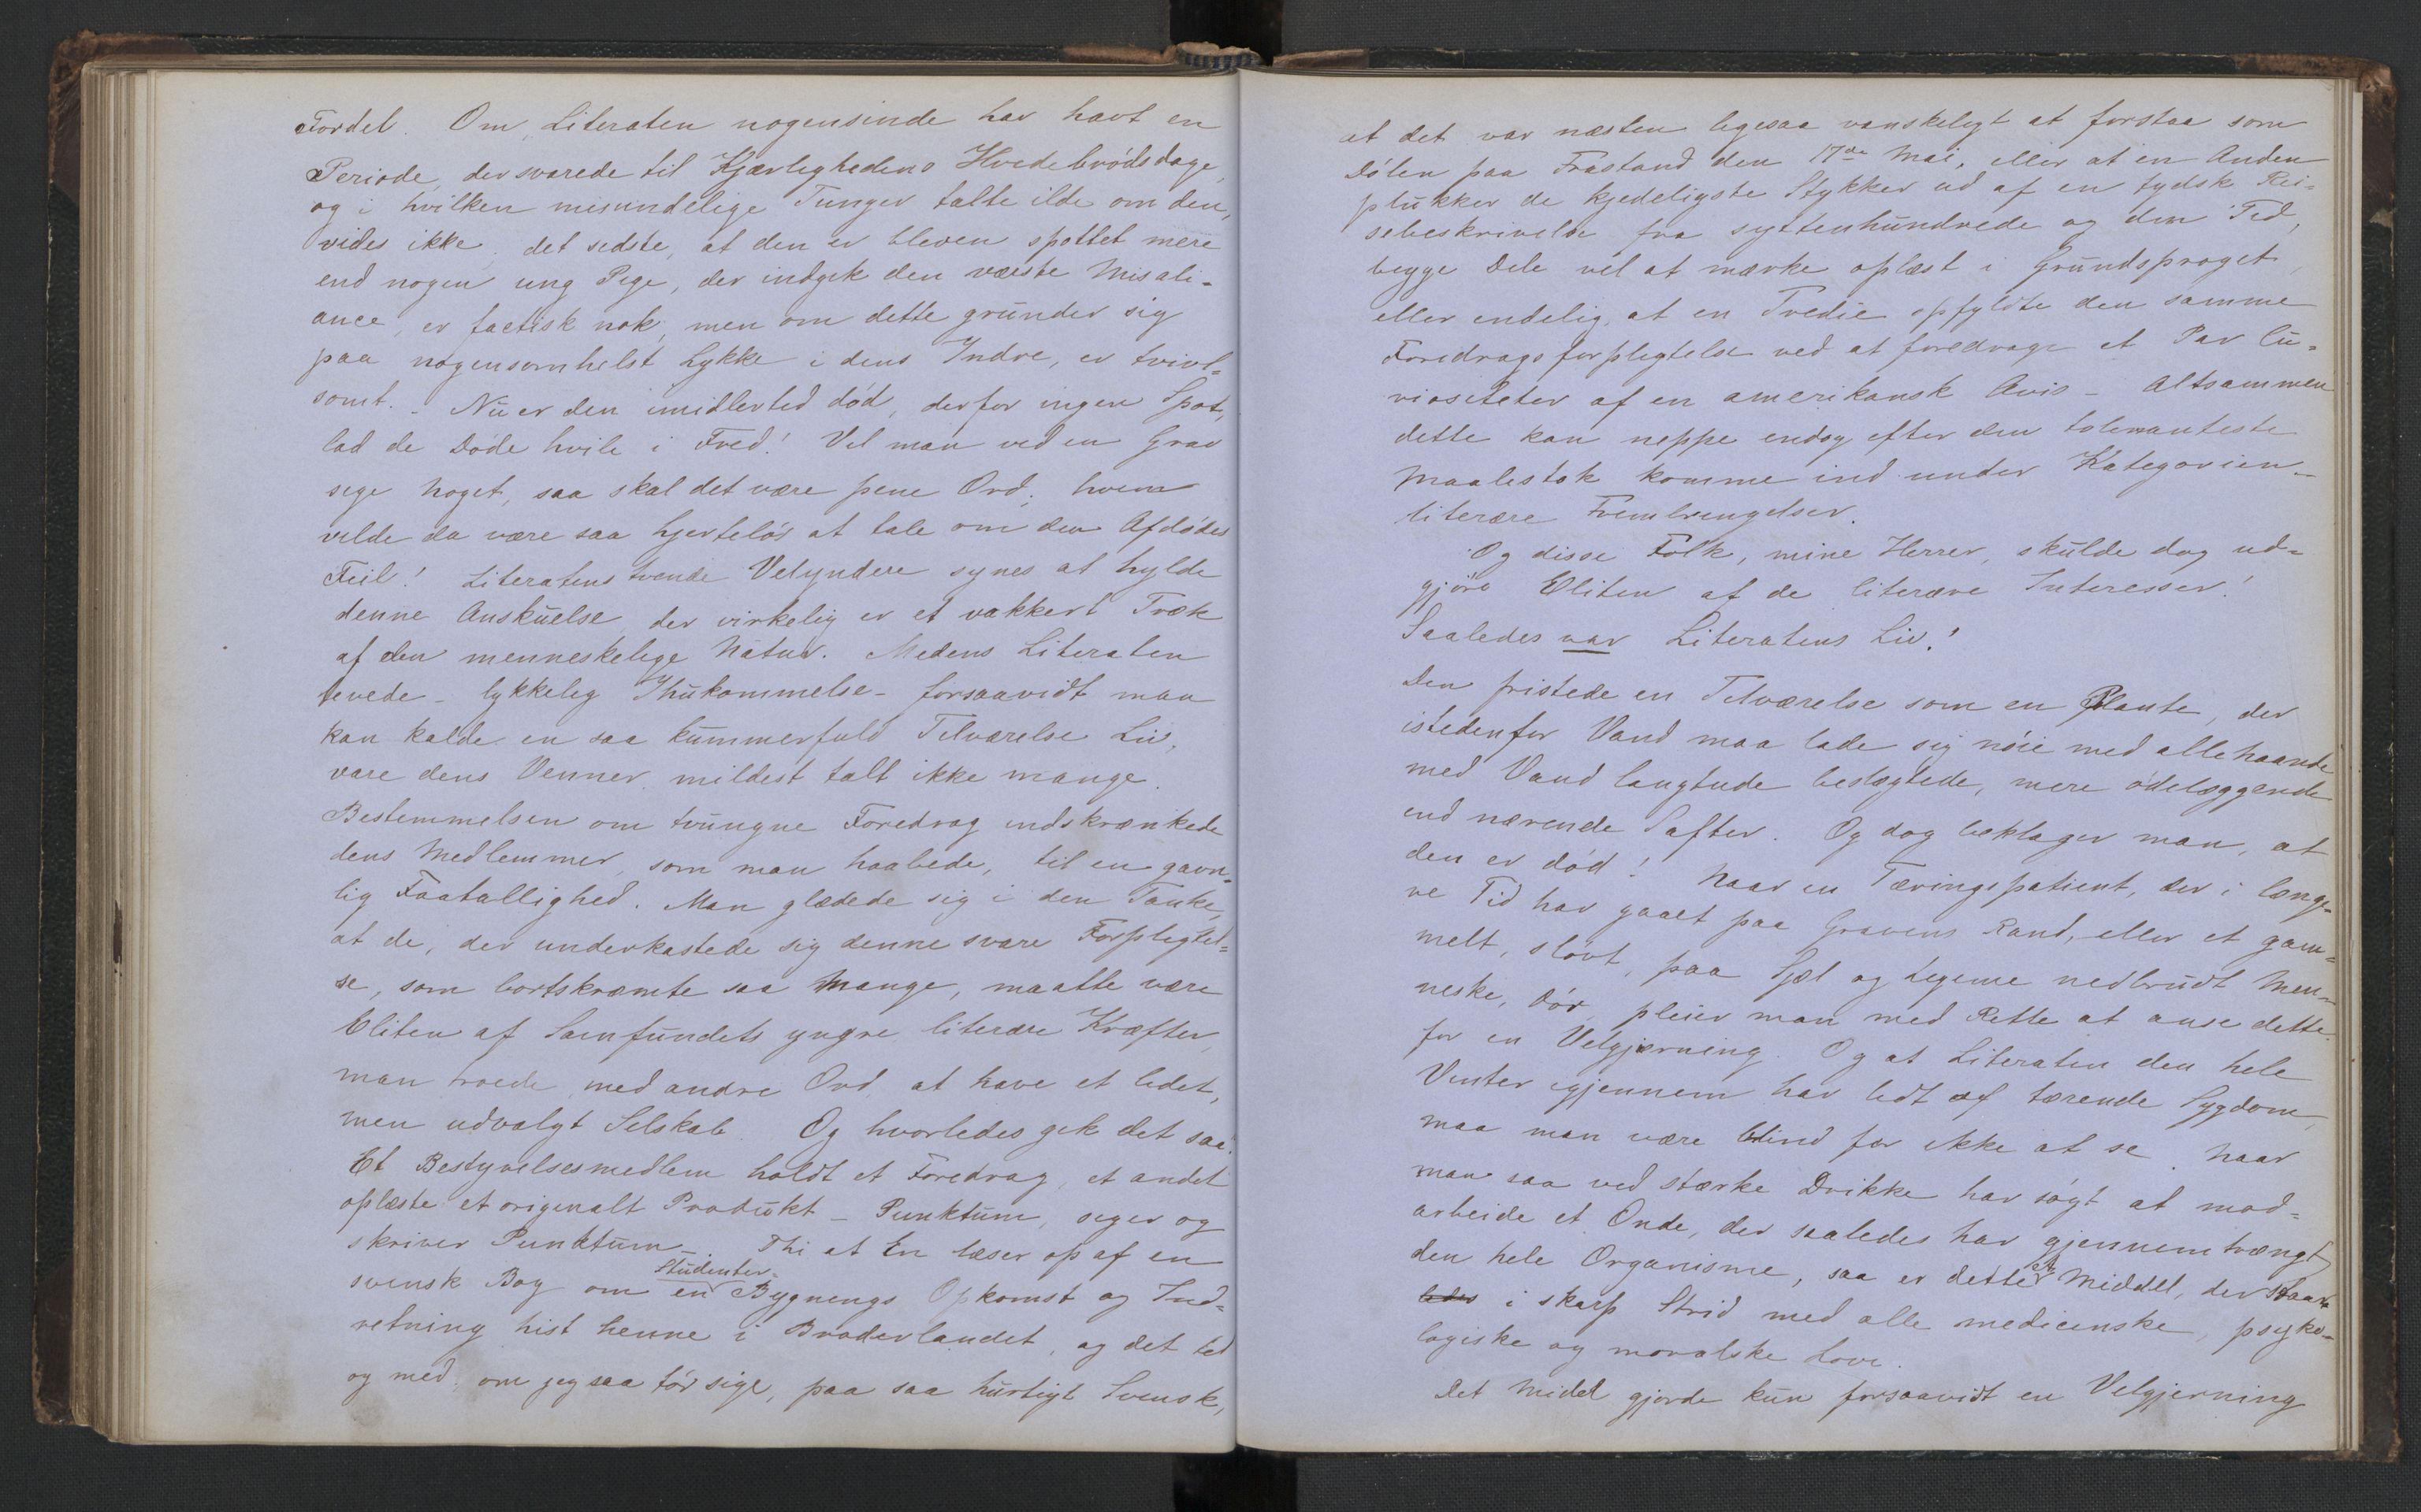 Fordel. Om Literaten nogensinde har havt en
Periode, der svarede til Kjærlighedens Hvedebrødsdage,
og i hvilken misundelige Tunger talte ilde om den,
vides ikke; det sidste, at den er bleven spottet mere
end nogen ung Pige, der indgik den værste Misali-
ance, er factisk nok, men om dette grunder sig
paa nogensomhelst Lykke i dens Indre, er tvivl-
somt. - Nu er den imidlertid død, derfor ingen Spot,
lad de Døde hvile i Fred! Vil man ved en Grav
sige Noget, saa skal det være pene Ord; hvem
vilde da være saa hjerteløs at tale om den Afdødes
Feil! Literatens tvende Velyndere synes at hylde
denne Anskuelse, der virkelig er et vakkert Træk
af den menneskelige Natur. Medens Literaten
levede - lykkelig Ihukommelse - forsaavidt man
kan kalde en saa kummerfuld Tilværelse Liv,
vare dens Venner mildest talt ikke mange.
Bestemmelsen om tvungne Foredrag indskrænkede
dens Medlemmer, som man haabede, til en gavn-
lig Faatallighed. Man glædede sig i den Tanke,
at de, der underkastede sig denne svare Forpligtel-
se, som bortskræmte saa Mange, maatte være
Eliten af Samfundets yngre literære Kræfter,
man troede, med andre Ord, at have et lidet,
men udvalgt Selskab. Og hvorledes gik det saa?
Et Bestyrelsesmedlem holdt et Foredrag, et andet
oplæste et originalt Produkt - Punktum, siger og
skriver Punktum - Thi at En læser op af en
svensk Bog om en Studenter-Bygnings Opkomst og Ind-
retning hist henne i Broderlandet, og det til
og med, om jeg saa tør sige, paa saa hurtigt Svensk,
at det var næsten ligesaa vanskeligt at forstaa som
Dølen paa Frastand den 17de Mai, eller at en Anden
plukker de kjedeligste Stykker ud af en tydsk Rei-
sebeskrivelse fra syttenhundrede og den Tid,
begge Dele vel at mærke oplæst i Grundsproget,
eller endelig, at en Tredie opfyldte den samme
Foredragsforpligtelse ved at foredrage et Par Cu-
riositeter af en amerikansk Avis - Altsammen
dette kan neppe endog efter den toleranteste
Maalestok komme ind under Kategorien -
literære Frembringelser.
Og disse Folk, mine Herrer, skulde dog ud-
gjøre Eliten af de literære Interesser!
Saaledes var Literatens Liv!
Den fristede en Tilværelse som en Plante, der
istedenfor Vand maa lade sig nøie med allehaande
med Vand langtude beslægtede, mere ødelæggende
end nærende Safter. Og dog beklager man, at
den er død! Naar en Tæringspatient, der i længe-
re Tid har gaaet paa Gravens Rand, eller et gam-
melt, sløvt, paa Sjæl og Legeme nedbrudt Men-
neske, dør, pleier man med Rette at anse dette
for en Velgjærning. Og at Literaten den hele
Vinter igjennem har lidt af tærende Sygdom,
maa man være blind for ikke at se. Naar
man saa ved stærke Drikke har søgt at mod-
arbeide et Onde, der saaledes har gjennemtrængt
den hele Organisme, saa er dette et Middel, der staar
i skarp Strid med alle medicinske, psyko-
logiske og moralske Love.
Det Middel gjorde kun forsaavidt en Velgjerning